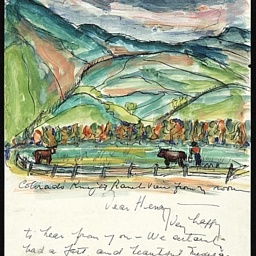 Colorado Ranch View from my room
Dear Henry
Very happy
to hear from you – We certainly
had a fast and beautiful